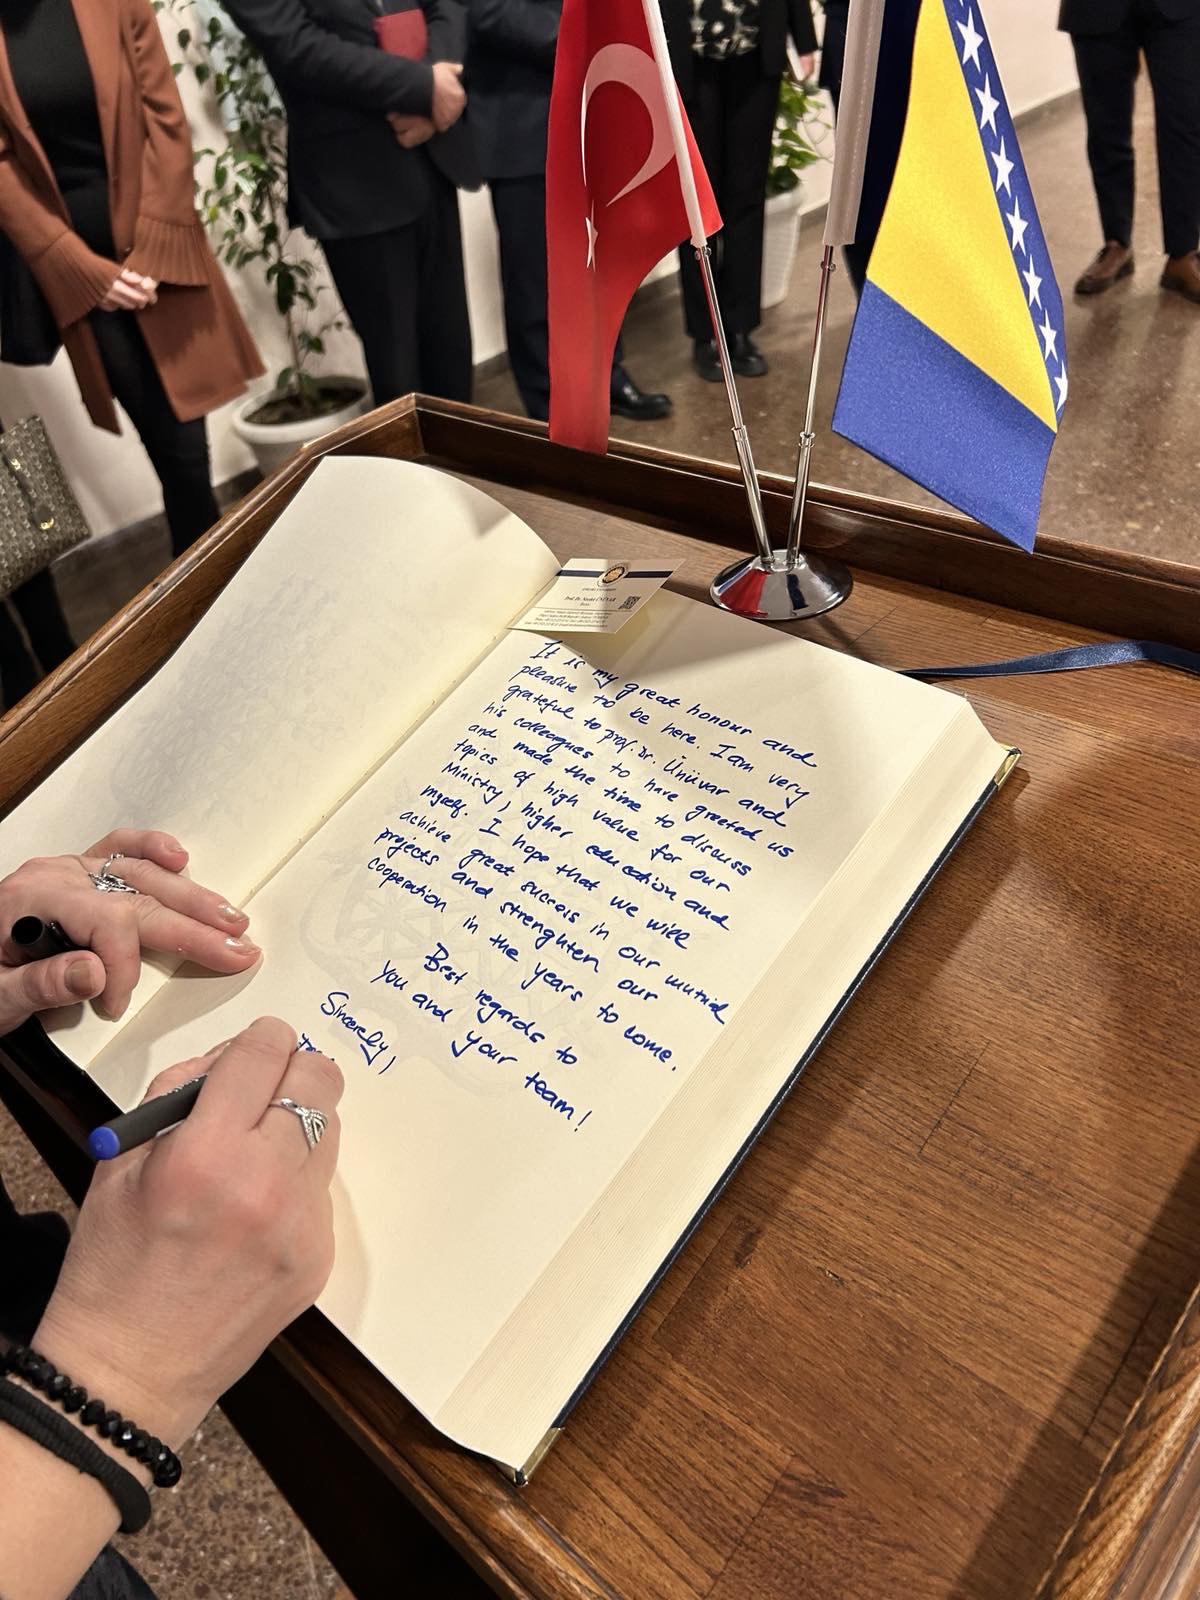 ANKARA UNIVERSITY
Prof. Dr. Necdet ÜNÜVAR
Rector
It is my great honour and
pleasure to be here. I am very
grateful to prof. Dr. Ünüvar and
his colleagues to have greeted us
and made the time to discuss
topics of high value for our
Ministry, higher education and
myself. I hope that we will
achieve great success in our mutual
projects and strenghten our
cooperation in the years to come.
Best regards to
you and your team!
Sincerely,